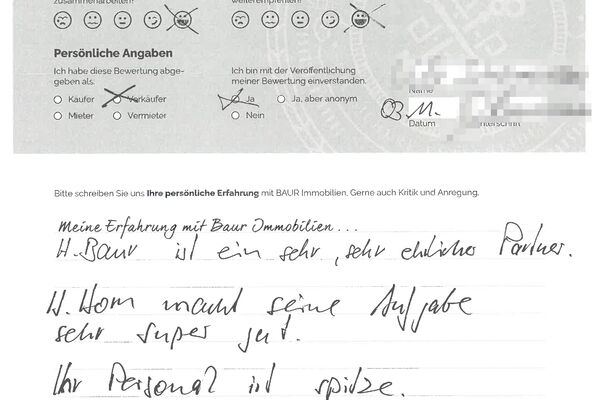 zusammenarbeiten?
weiterempfehlen?
Persönliche Angaben
Ich habe diese Bewertung abge-
geben als:
Käufer
Verkäufer
Mieter
Vermieter
Ich bin mit der Veröffentlichung
meiner Bewertung einverstanden.
Ja
Ja, aber anonym
Nein
Name
03. M.
Datum
Bitte schreiben Sie uns Ihre persönliche Erfahrung mit BAUR Immobilien. Gerne auch Kritik und Anregung.
Meine Erfahrung mit Baur Immobilien...
H. Baur ist ein sehr, sehr ehrlicher Partner.
H. Horn macht seine Aufgabe
sehr super gut.
Ihr Personal ist spitze.